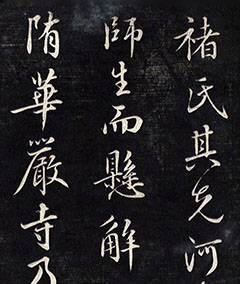 褚氏其先河
師生而懸解
隋華嚴寺乃